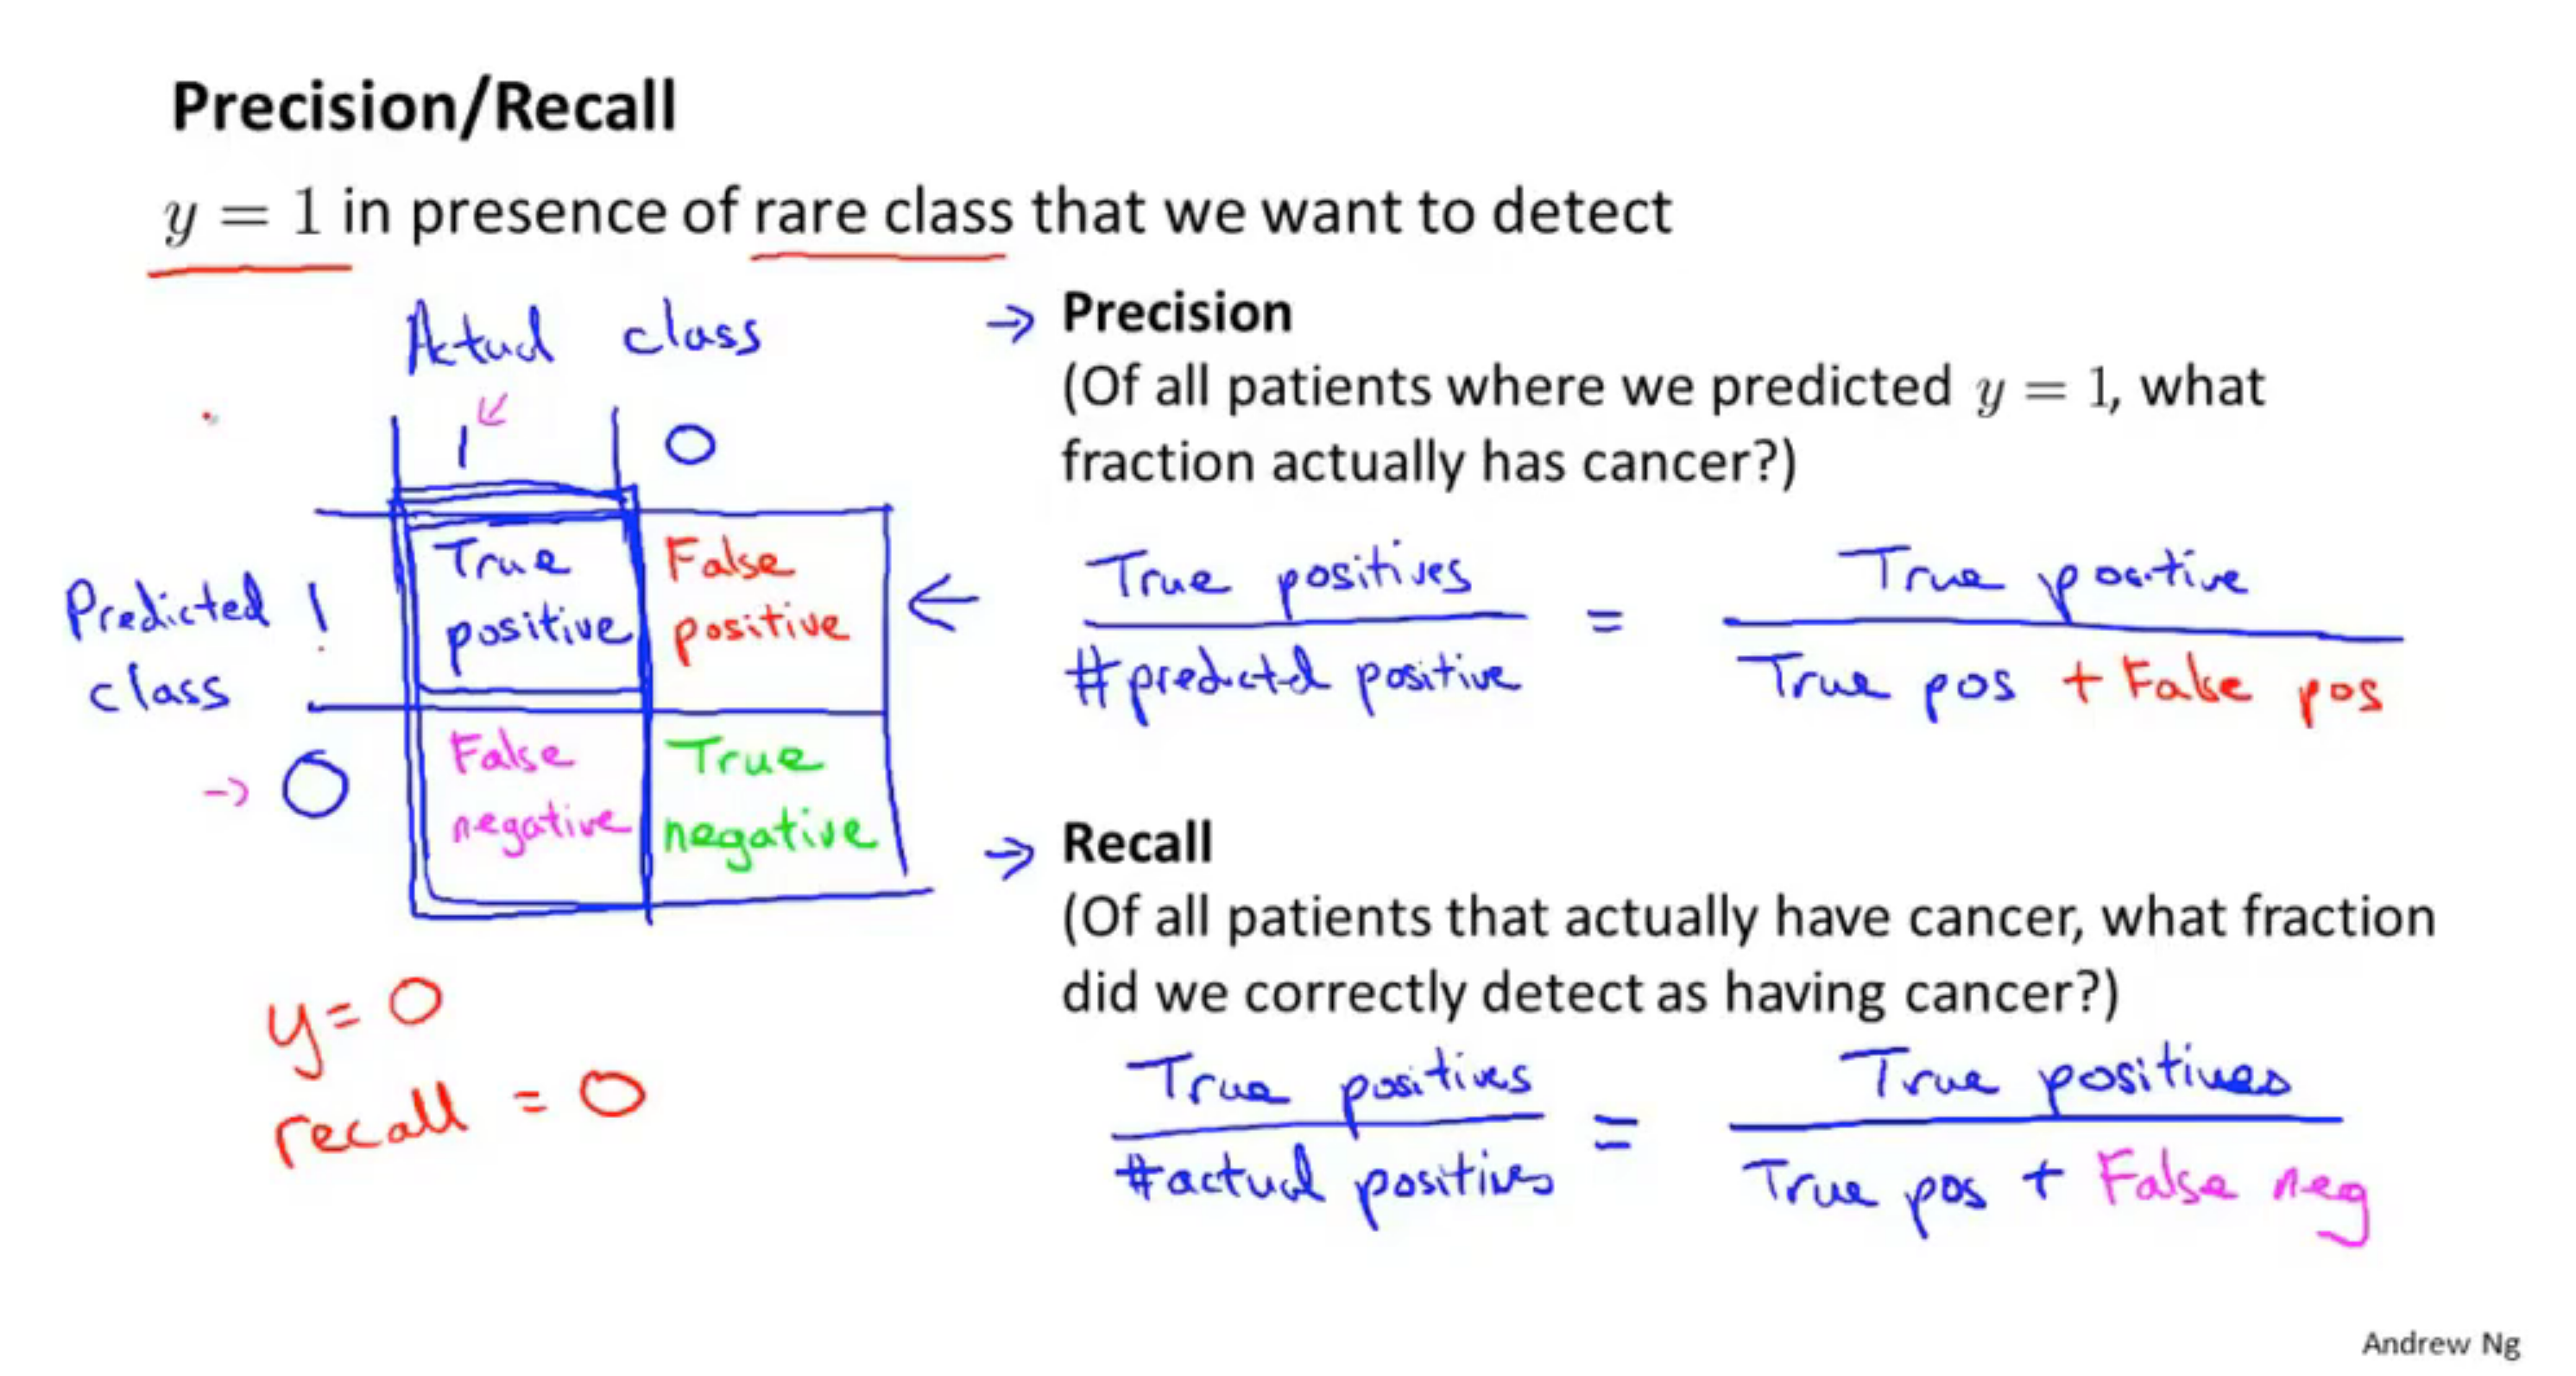 Precision/Recall
y = 1 in presence of rare class that we want to detect
Actual class
1 0
Predicted class
1
True positive
False positive
0
False negative
True negative
y = 0
recall = 0
→ Precision
(Of all patients where we predicted y = 1, what
fraction actually has cancer?)
True positives / #predicted positive = True positive / True pos + False pos
→ Recall
(Of all patients that actually have cancer, what fraction
did we correctly detect as having cancer?)
True positives / #actual positives = True positives / True pos + False neg
Andrew Ng